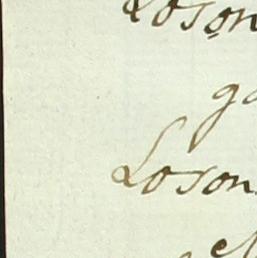 Loson
ga
Loson